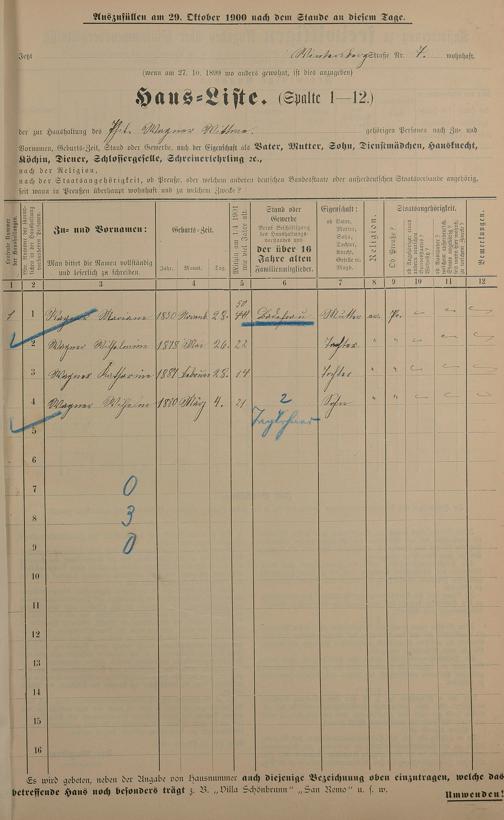 Auszufüllen am 29. Oktober 1900 nach dem Stande an diesem Tage.
Jetzt Straße Nr. 7. wohnhaft.
(wenn am 27. 10. 1899 wo anders gewohnt, ist dies anzugeben)
Haus=Liste. (Spalte 1—12.)
der zur Haushaltung des Wagner Wittwe. gehörigen Personen nach Zu- und
Vornamen, Geburts-Zeit, Stand oder Gewerbe, nach der Eigenschaft als Vater, Mutter, Sohn, Dienstmädchen, Hausknecht,
Köchin, Diener, Schlossergeselle, Schreinerlehrling ec.,
nach der Religion,
nach der Staatsangehörigkeit, ob Preuße, oder welchem anderen deutschen Bundesstaate oder außerdeutschen Staatsverbande angehörig,
seit wann in Preußen überhaupt wohnhaft und zu welchem Zwecke?
Zu- und Vornamen:
Man bittet die Namen vollständig und leserlich zu schreiben.
Geburts-Zeit.
Jahr. Monat. Tag.
Stand oder Gewerbe
der über 16 Jahre alten Familienmitglieder.
Eigenschaft:
Religion.
Staatsangehörigkeit.
Ob Preuße?
Bemerkungen.
1 2 3 4 5 6 7 8 9 10 11 12
1 1 Wagner Mariane 1850 Novemb. 28. 50 Mutter ev. Pr.
2 Wagner Wilhelmine 1878 Mai 26. 22 Tochter " "
3 Wagner Katharine 1887 Februar 28. 14 Tochter " "
4 Wagner Wilhelm 1880 März 4. 21 2 Sohn " "
Taglöhner
5
6
7 0
8 3
9 0
10
11
12
13
14
15
16
Es wird gebeten, neben der Angabe von Hausnummer auch diejenige Bezeichnung oben einzutragen, welche das
betreffende Haus noch besonders trägt z. B. „Villa Schönbrunn" „San Remo" u. s. w.
Umwenden!